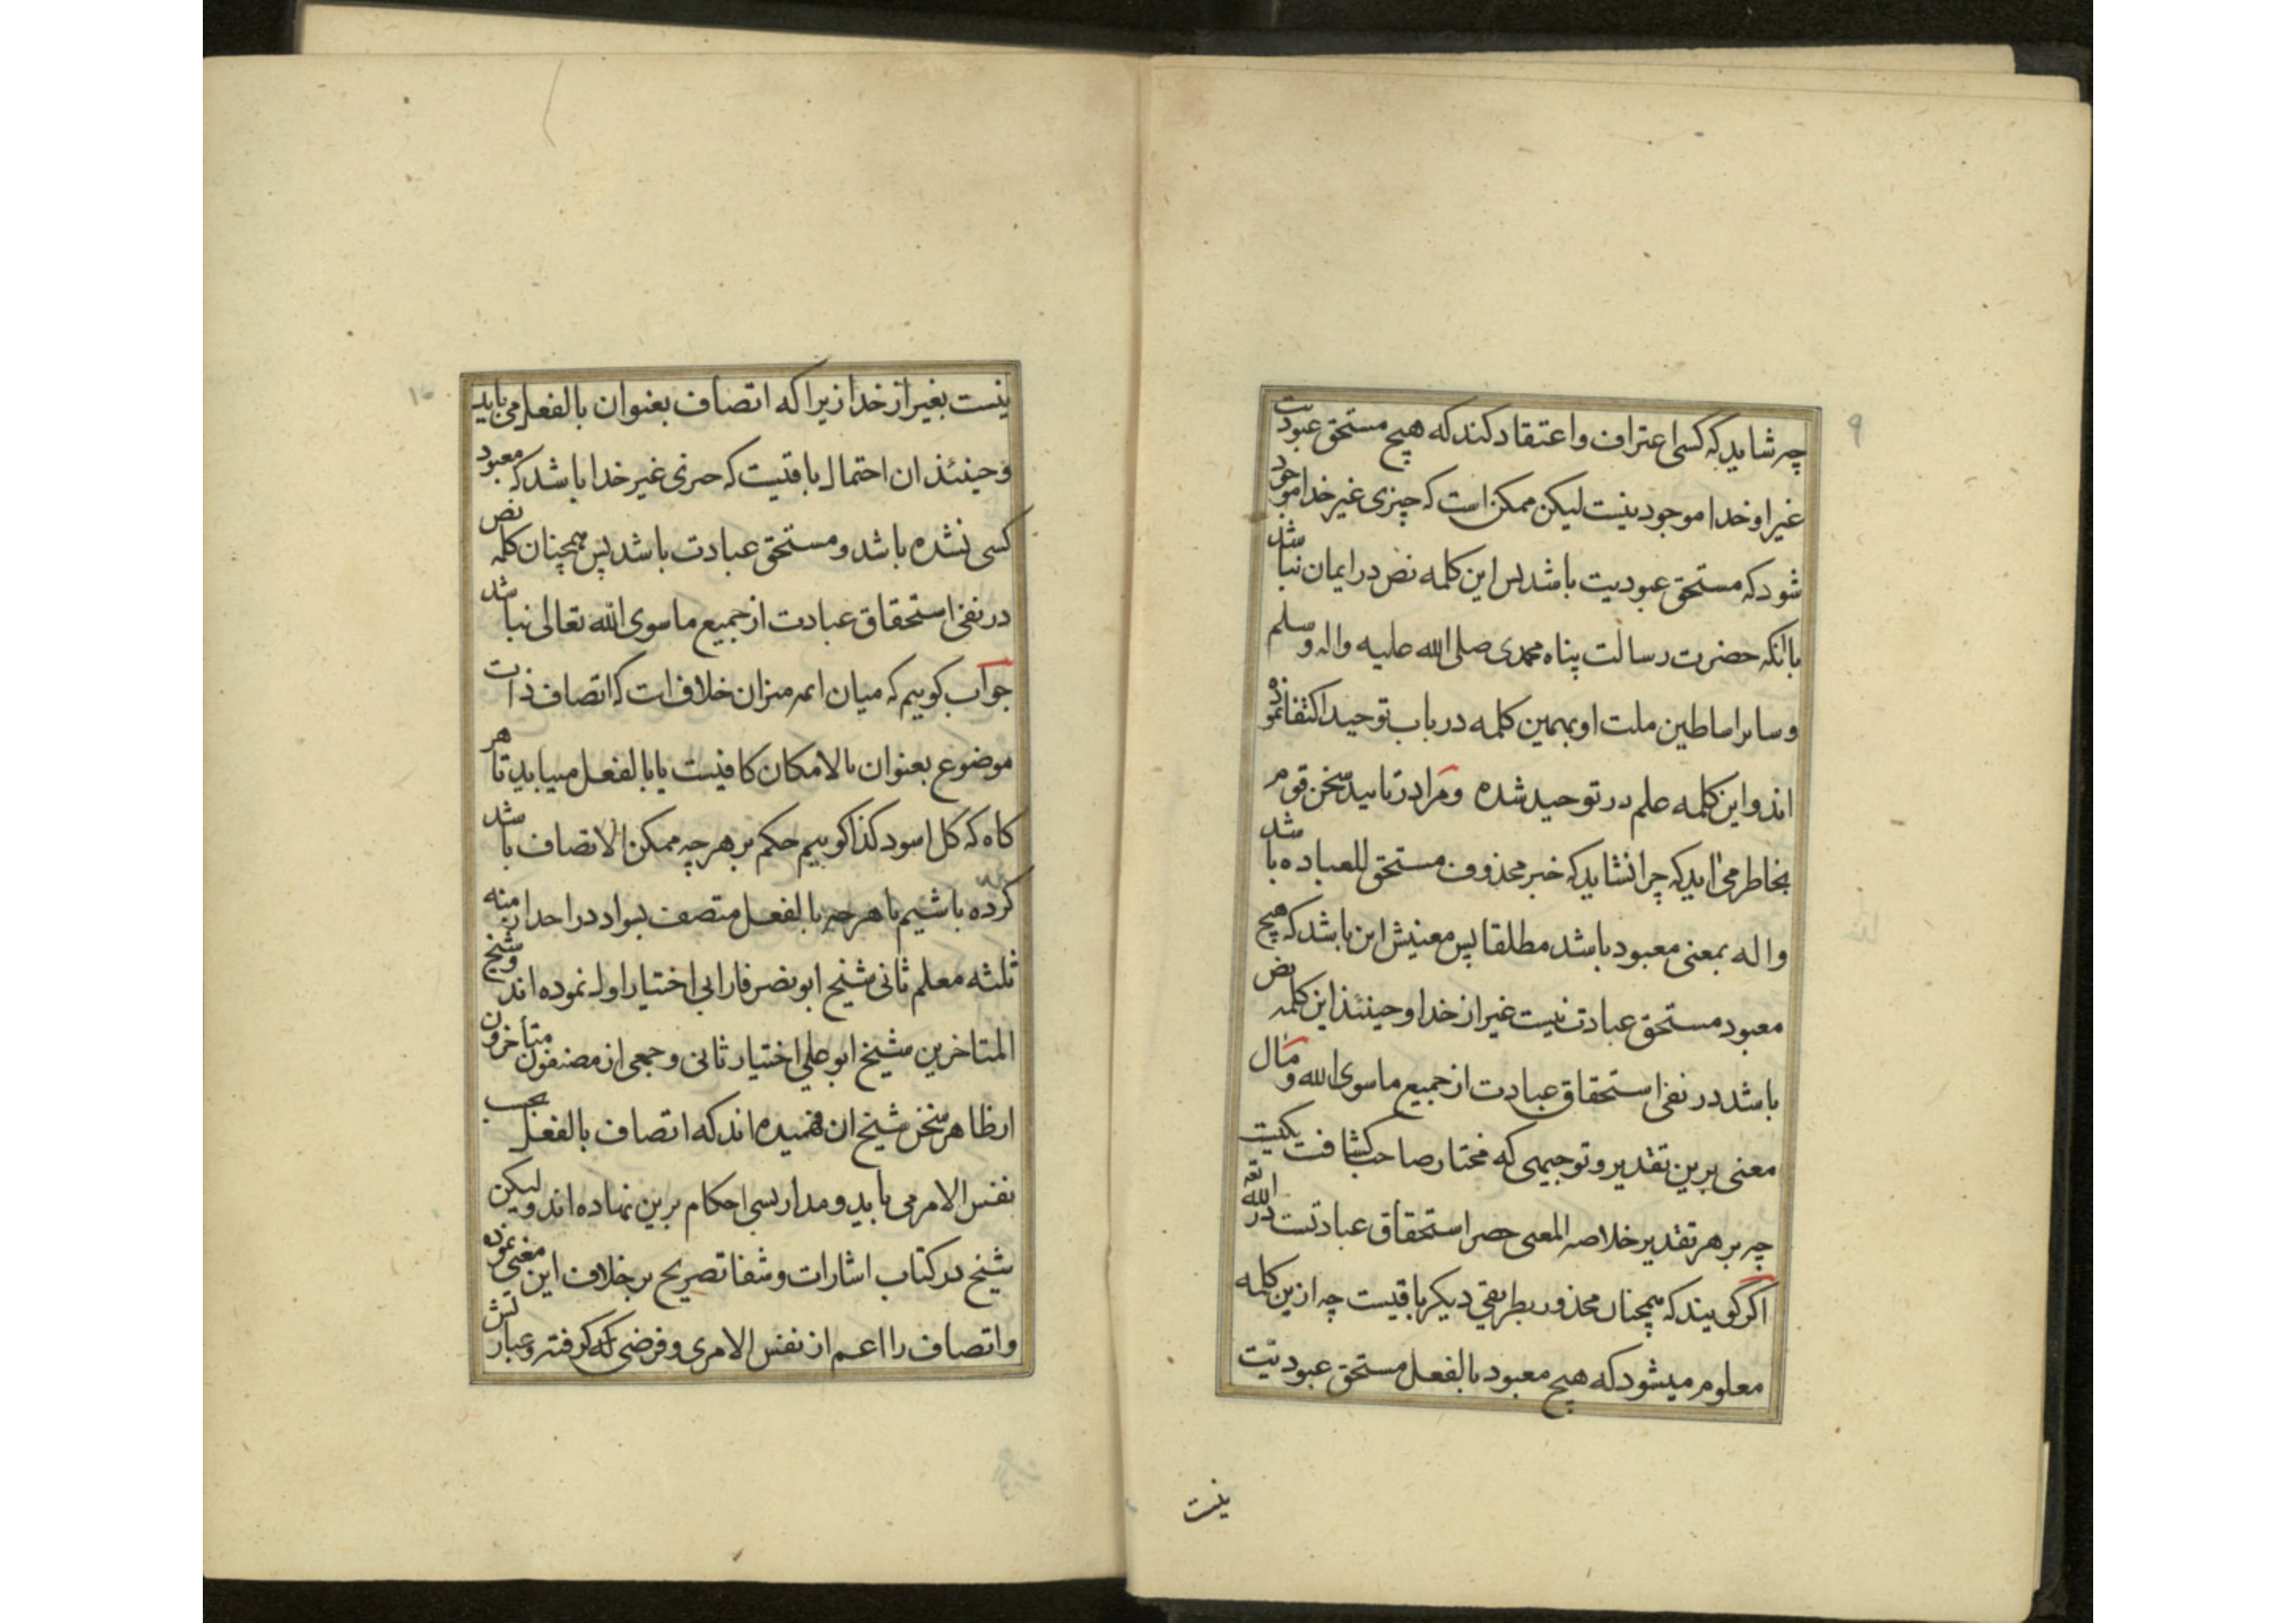 ۹
چه شاید که کسی اعتراف و اعتقاد کند که هیچ مستحق عبودیت
غیر او خدا موجود نیست لیکن ممکن است که چیزی غیر خدا موجود
شود که مستحق عبودیت باشد پس این کلمه نص در ایمان نباشد
باانکه حضرت رسالت پناه محمدی صلی الله علیه واله وسلم
و سایر اساطین ملت او بهمین کلمه در باب توحید اکتفا نموده
اند و این کلمه علم در توحید شده و مرا در تایید سخن قوم
بخاطر می اید که چرا نشاید که خبر محذوف مستحق للعباده باشد
و اله بمعنی معبود باشد مطلقا پس معنیش این باشد که هیچ
معبود مستحق عبادت نیست غیر از خدا و حینئذ این کلمه نص
باشد در نفی استحقاق عبادت از جمیع ماسوی الله و مآل
معنی برین تقدیر و توجیهی که مختار صاحب کشافت یکیت
چه بر هر تقدیر خلاصه المعنی حصر استحقاق عبادتست در الله تعه
اگر گویند که همچنان محذور بطریقی دیگر باقیست چه ازین کلمه
معلوم میشود که هیچ معبود بالفعل مستحق عبودیت
نیست
۱۰
نیست بغیر از خدا زیرا که اتصاف بعنوان بالفعل می باید
و حینئذ ان احتمال باقیست که چیزی غیر خدا باشد که معبود
کسی نشده باشد و مستحق عبادت باشد پس همچنان کلمه نص
در نفی استحقاق عبادت از جمیع ماسوی الله تعالی نباشد
جواب کوییم که میان ائمه میزان خلاف است که اتصاف ذات
موضوع بعنوان بالامکان کافیست یا بالفعل میباید تا هر
کاه که کل اسود کذا کوییم حکم بر هر چه ممکن الاتصاف باشد
کرده باشیم یا هر چه بالفعل متصف بسواد در احد ازمنه
ثلثه معلم ثانی شیخ ابو نصر فارابی اختیار اول نموده اند و شیخ
المتاخرین شیخ ابو علی اختیار ثانی و جمعی از مصنفون متأخرون
از ظاهر سخن شیخ ان فهمیده اند که اتصاف بالفعل بحسب
نفس الامر می باید و مدار بسی احکام برین نهاده اند و لیکن
شیخ در کتاب اشارات و شفا تصریح بر خلاف این معنی نموده
و اتصاف را اعم از نفس الامری و فرضی که کرفته و عبارتش